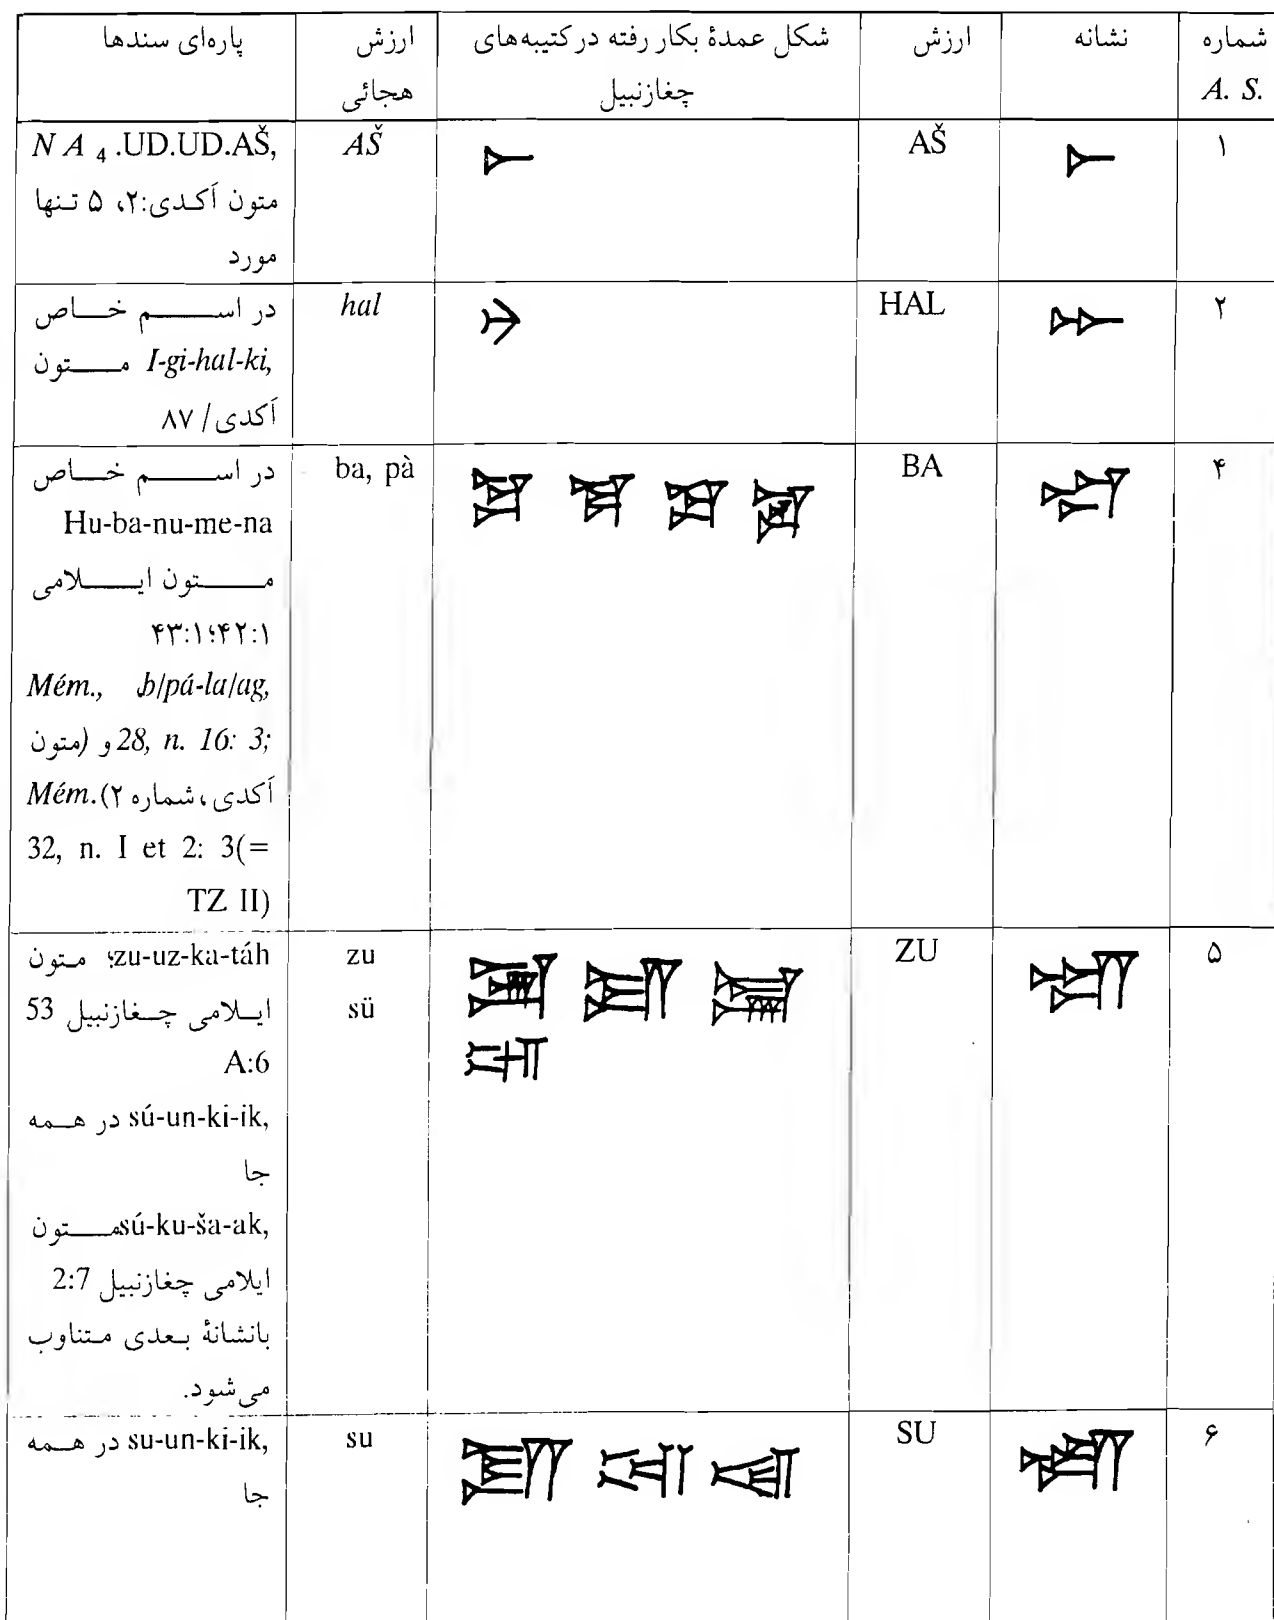 شماره A. S.
نشانه
ارزش
شکل عمدهٔ بکار رفته در کتیبه‌های چغازنبیل
ارزش هجائی
پاره‌ای سندها
۱
AŠ
AŠ
NA 4 .UD.UD.AŠ,
متون اَکدی:۲، ۵ تنها
مورد
۲
HAL
hal
در اسم خاص
I-gi-hal-ki, متون
اَکدی/ ۸۷
۴
BA
ba, pà
در اسم خاص
Hu-ba-nu-me-na
متون ایلامی
۴۲:۱؛۴۳:۱
Mém., b/pá-la/ag,
28, n. 16: 3; و (متون
اَکدی، شماره ۲) Mém.
32, n. I et 2: 3(=
TZ II)
۵
ZU
zu
sü
zu-uz-ka-táh؛ متون
ایلامی چغازنبیل 53
A:6
sú-un-ki-ik, در همه
جا
sú-ku-ša-ak, متون
ایلامی چغازنبیل 2:7
بانشانهٔ بعدی متناوب
می‌شود.
۶
SU
su
su-un-ki-ik, در همه
جا